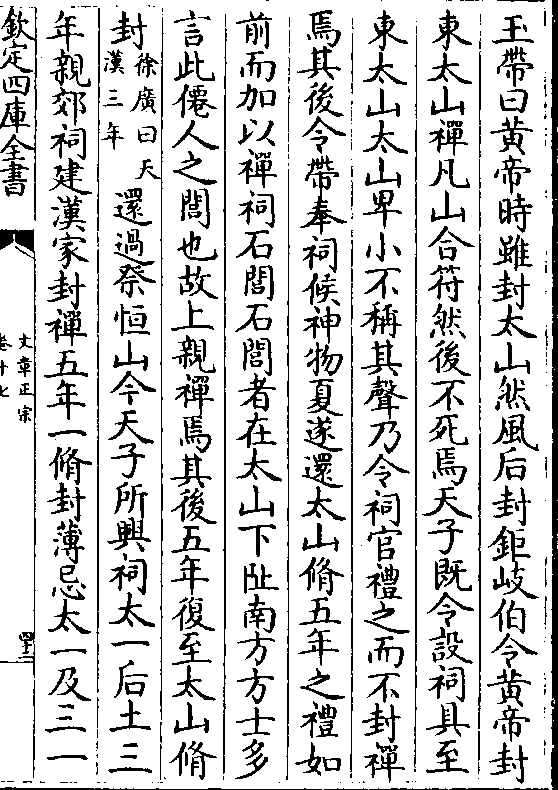 玉帶曰黄帝時雖封太山然風后封鉅岐伯令黄帝封
東太山禪凡山合符然後不死焉天子既令設祠具至
東太山太山卑小不稱其聲乃令祠官禮之而不封禪
焉其後令帶奉祠候神物夏遂還太山脩五年之禮如
前而加以禪祠石閭石閭者在太山下阯南方方士多
言此僊人之閭也故上親禪焉其後五年復至太山脩
封徐廣曰天漢三年還過祭恒山今天子所興祠太一后土三
年親郊祠建漢家封禪五年一脩封薄忌太一及三一
欽定四庫全書
文章正宗
卷十七